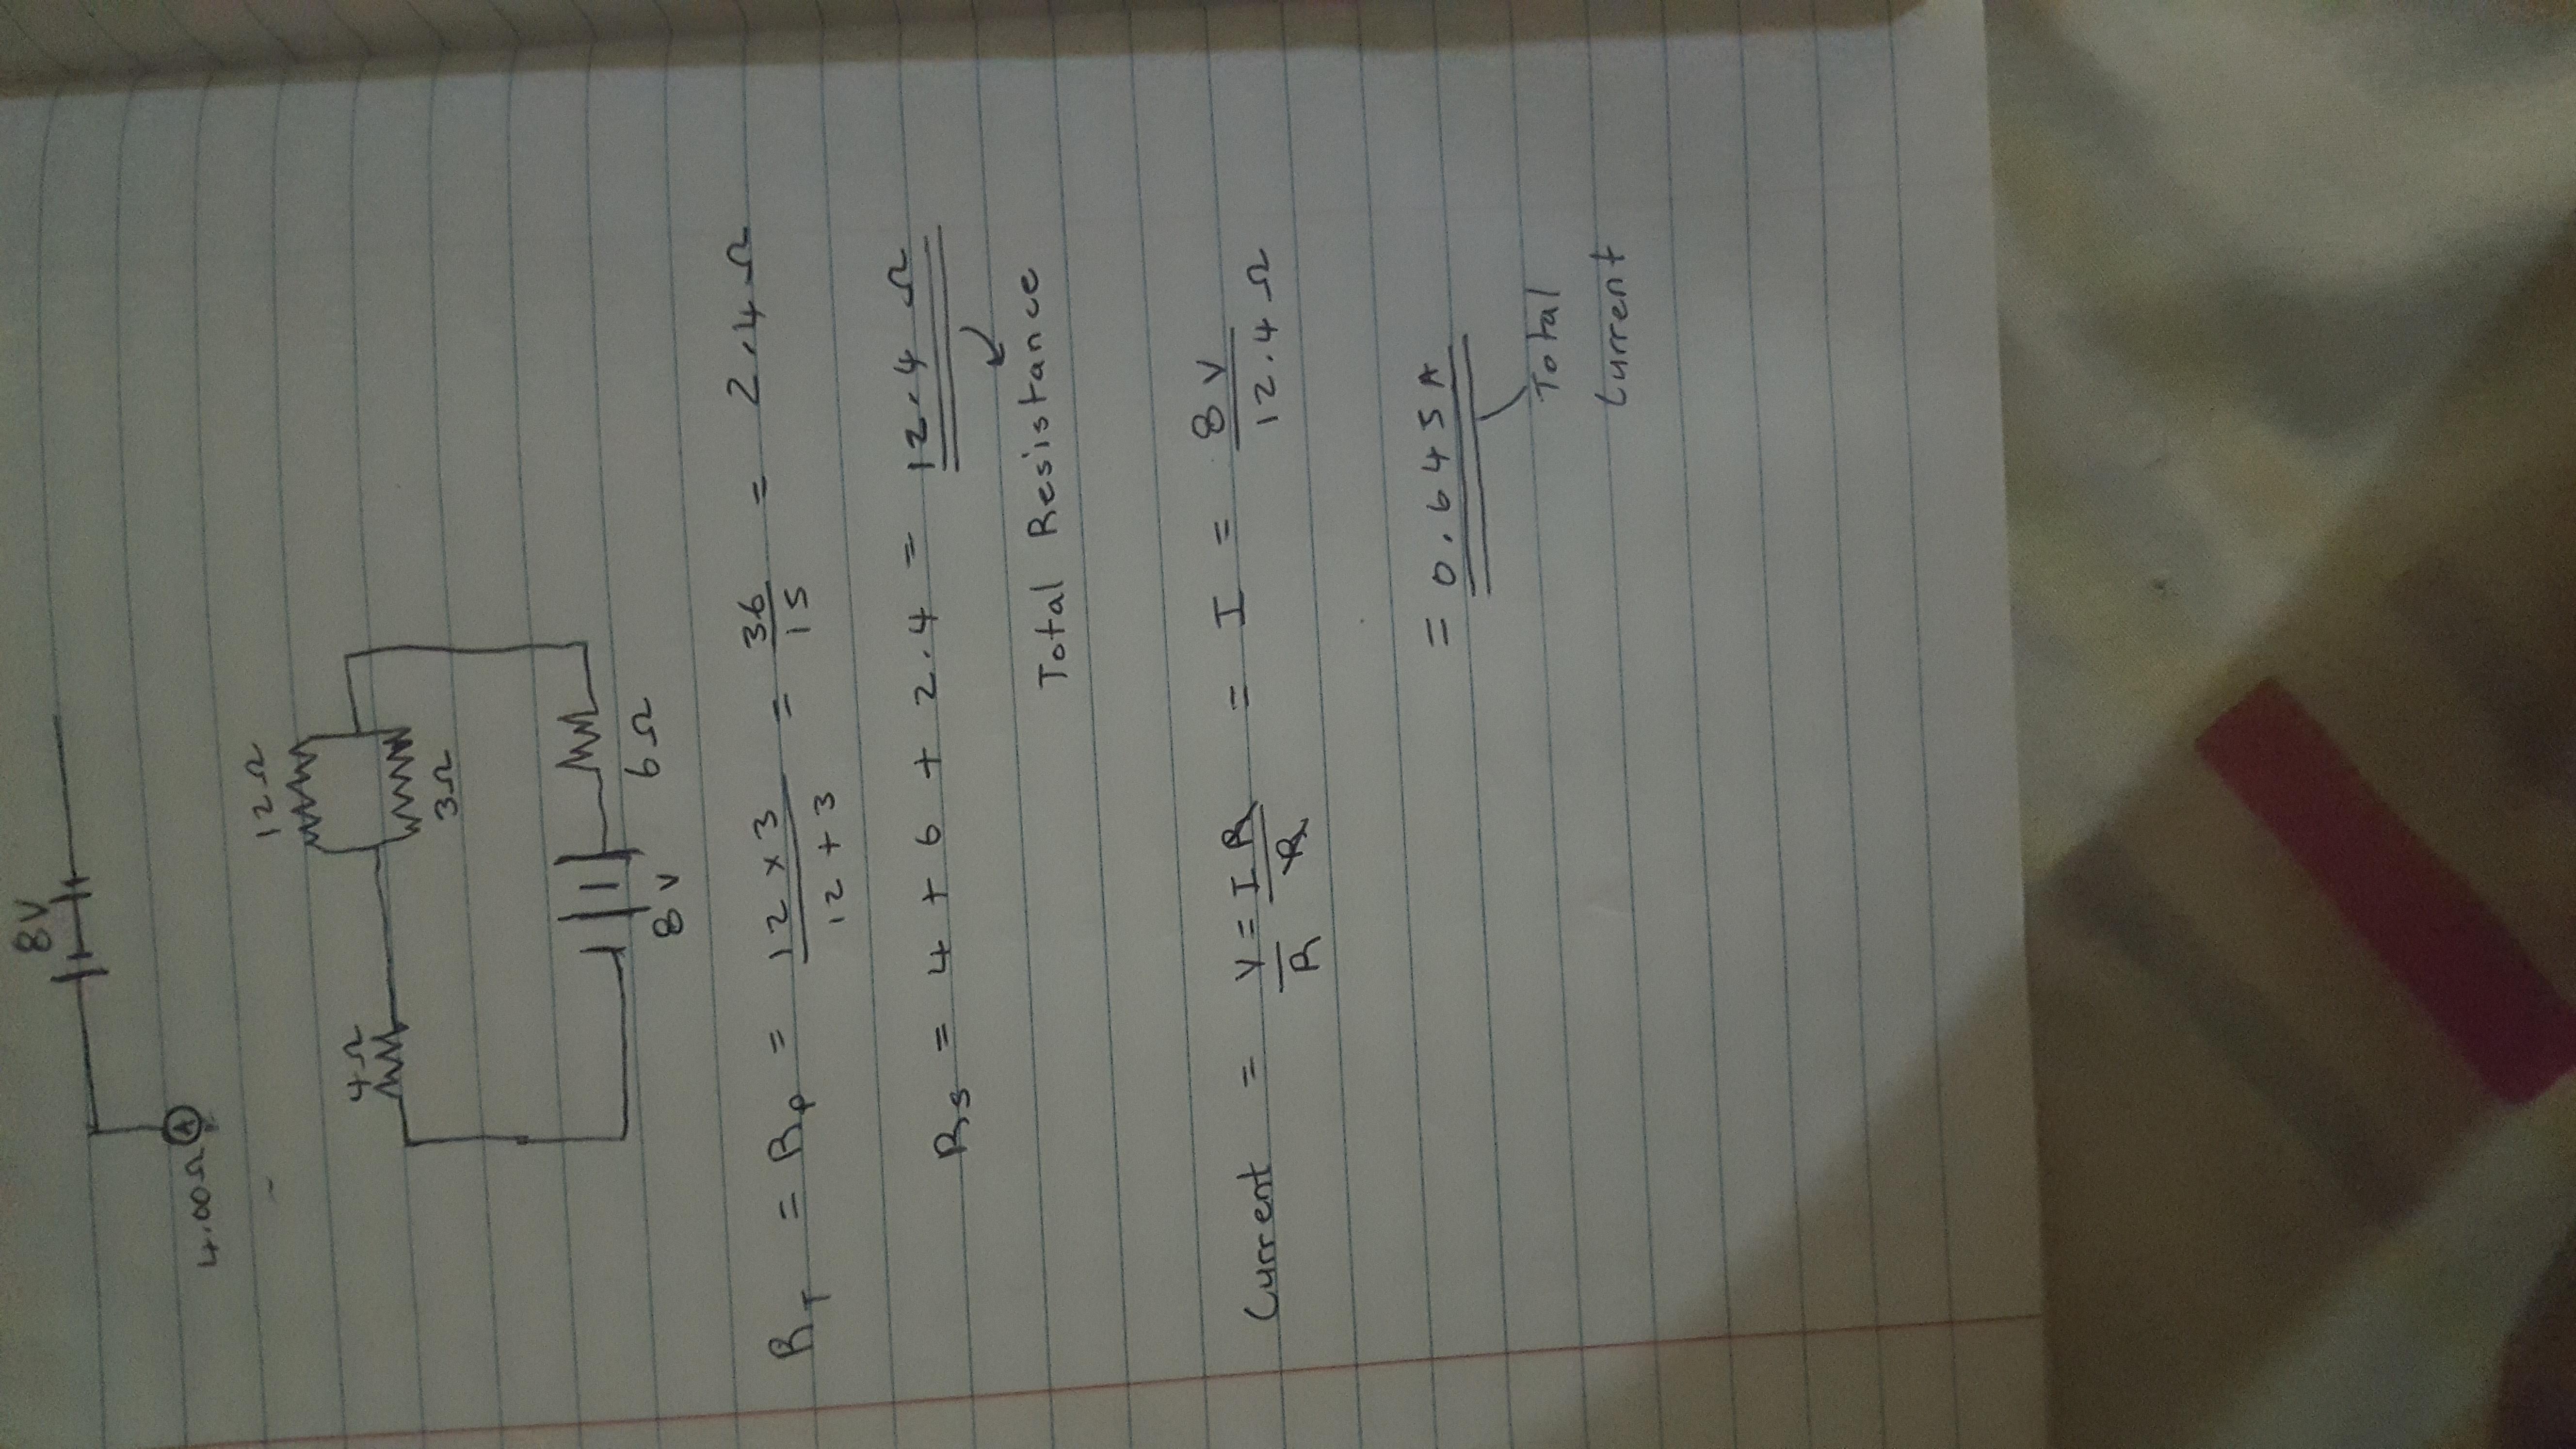 8V
4.00Ω A
12Ω
4Ω
3Ω
6Ω
8V
R_T = R_P = 12 x 3 / 12 + 3 = 36 / 15 = 2.4Ω
R_S = 4 + 6 + 2.4 = 12.4Ω
Total Resistance
Current = V / R = I R / R = I = 8V / 12.4Ω
= 0.645A
Total
Current